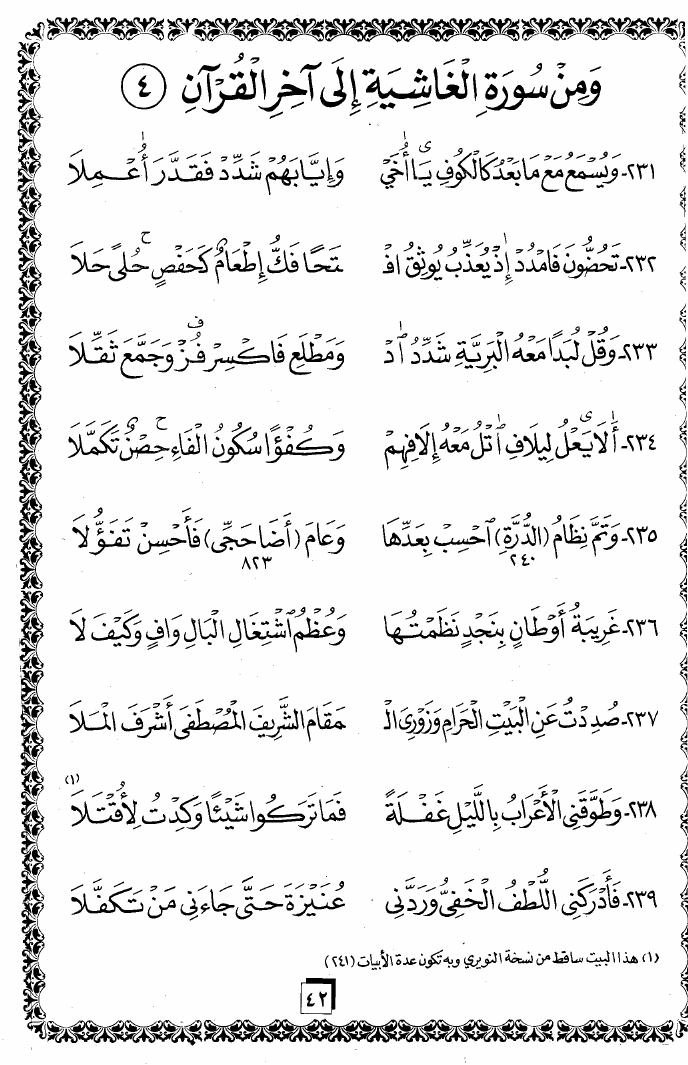 وَمِنْ سُورَةِ الْغَاشِيَةِ إِلَى آخِرِ الْقُرْآنِ ٤
٢٣١- وَيُسْمَعُ مَعْ مَا بَعْدُ كَالْكُوفِ يَا أُخَيْ وَإِيَّابَهُمْ شَدِّدْ فَقَدَّرَ أُعْمِلَا
٢٣٢- تَحُضُّونَ فَامْدُدْ إِذْ يُعَذِّبُ يُوثِقُ افْـ ـتَحَا فَكُّ إِطْعَامٌ كَحَفْصٍ حُلىً حَلَا
٢٣٣- وَقُلْ لُبَدًا مَعْهُ الْبَرِيَّةِ شَدِّدُ اْدْ وَمَطْلَعِ فَاكْسِرْ فُزْ وَجَمَّعَ ثَقِّلَا
٢٣٤- أَلَا يَعْلُ لِيلَافِ اتْلُ مَعْهُ إِلَافِهِمْ وَكُفْؤًا سُكُونُ الْفَاءِ حِصْنٌ تَكَمَّلَا
٢٣٥- وَتَمَّ نِظَامُ (الدُّرَّةِ) احْسِبْ بِعَدِّهَا وَعَامَ (أَضَا حَجِّي) فَأَحْسِنْ تَفَؤُّلَا
٢٤٠ ٨٢٣
٢٣٦- غَرِيبَةُ أَوْطَانٍ بِنَجْدٍ نَظَمْتُهَا وَعُظْمُ اشْتِغَالِ الْبَالِ وَافٍ وَكَيْفَ لَا
٢٣٧- صُدِدْتُ عَنِ الْبَيْتِ الْحَرَامِ وَزَوْرِيَ الْـ ـمَقَامَ الشَّرِيفَ الْمُصْطَفَى أَشْرَفَ الْمَلَا
٢٣٨- وَطَوَّقَنِي الْأَعْرَابُ بِاللَّيْلِ غَفْلَةً فَمَا تَرَكُوا شَيْئًا وَكِدْتُ لِأُقْتَلَا (١)
٢٣٩- فَأَدْرَكَنِي اللُّطْفُ الْخَفِيُّ وَرَدَّنِي عُنَيْزَةَ حَتَّى جَاءَنِي مَنْ تَكَفَّلَا
(١) هذا البيت ساقط من نسخة النويري وبه تكون عدة الأبيات (٢٤١)
٤٢